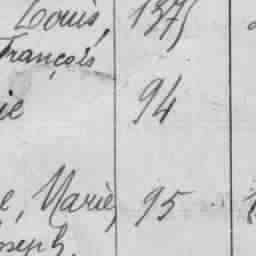 Louis, 1375
François
ie 94
e, Marie, 95
oseph.